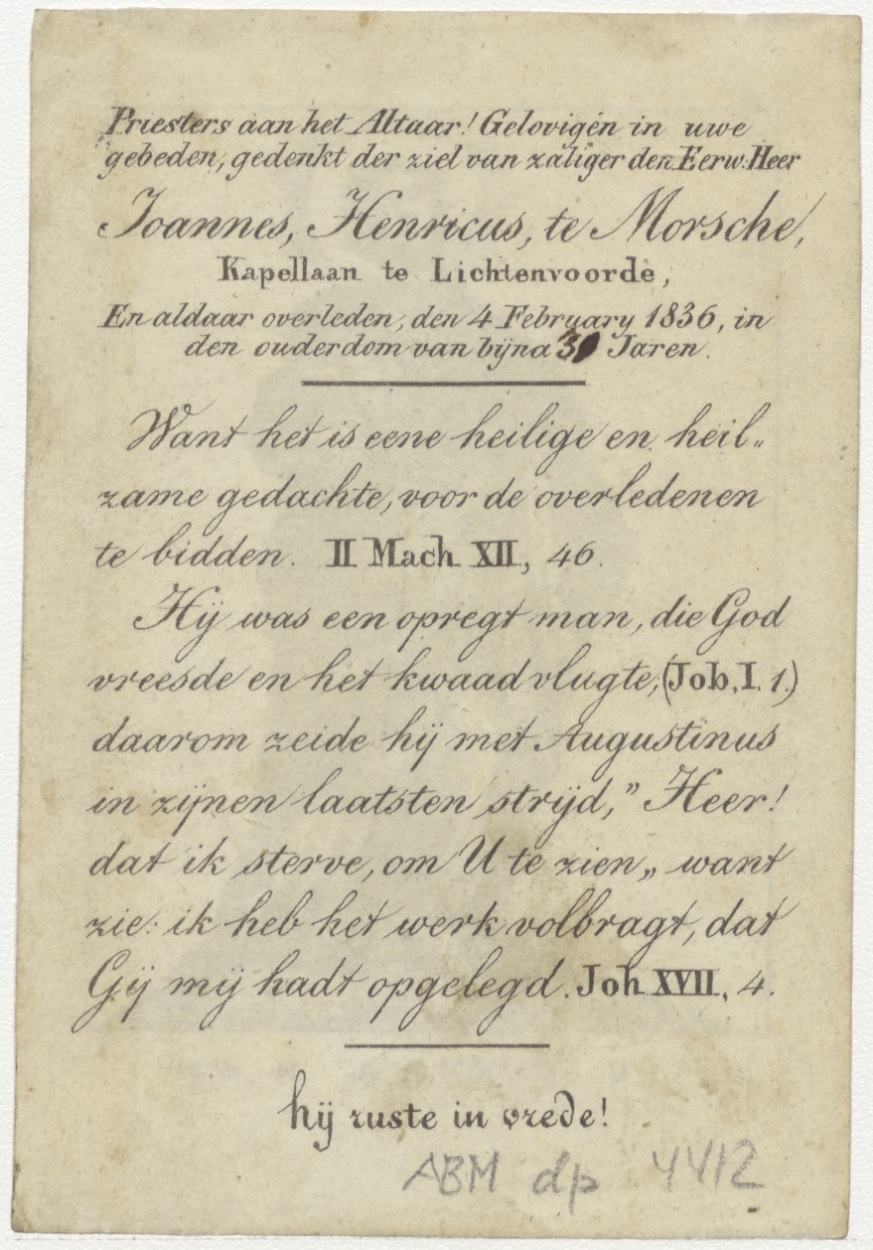 Priesters aan het Altaar! Gelovigen in uwe
gebeden, gedenkt der ziel van zaliger den Eerw. Heer
Joannes, Henricus, te Morsche,
Kapellaan te Lichtenvoorde,
En aldaar overleden, den 4 February 1836, in
den ouderdom van bijna Jaren.
Want het is eene heilige en heil„
zame gedachte, voor de overledenen
te bidden. II Mach XII, 46.
Hij was een opregt man, die God
vreesde en het kwaad vlugte, (Job, I. 1.)
daarom zeide hij met Augustinus
in zijnen laatsten strijd, ” Heer!
dat ik sterve, om U te zien „ want
zie: ik heb het werk volbragt, dat
Gij mij hadt opgelegd. Joh XVII, 4.
hij ruste in vrede!
ABM dp 4412